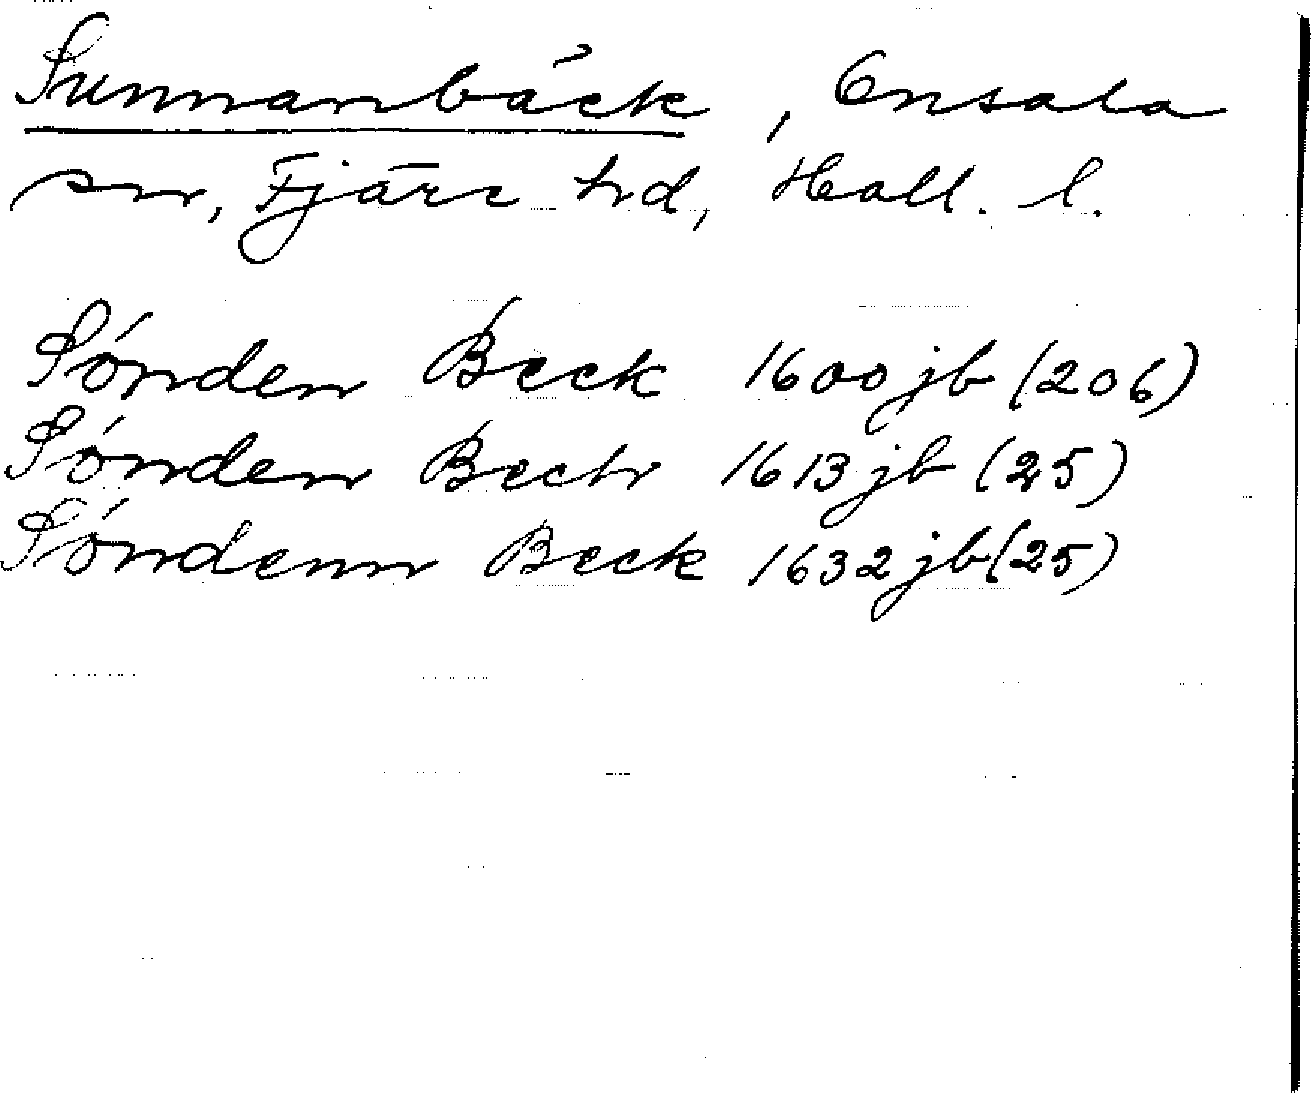 Sunnanbäck, Onsala
sn, Fjäre hd, Hall. l.
Sónden Beck 1600 jb (206)
Sónden Bech 1613 jb (25)
Sóndenn Beck 1632 jb (25)